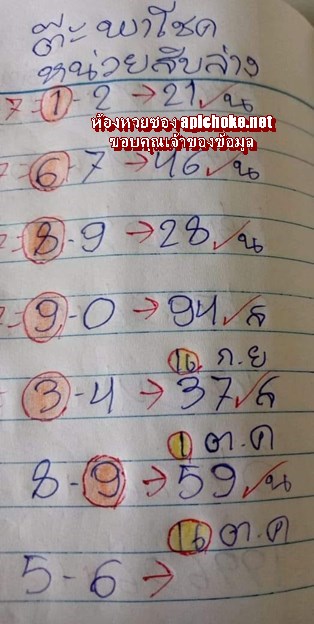 ต๊ะ พาโชค
หน่วยสิบล่าง
7=1-2→21✓น
ห้องหวยซอง apichoke.net
ขอบคุณเจ้าของข้อมูล
6-7→46✓น
8-9→28✓น
9-0→94✓ส
16 ก.ย
3-4→37✓ส
1 ต.ค
8-9→59✓น
16 ต.ค
5-6→